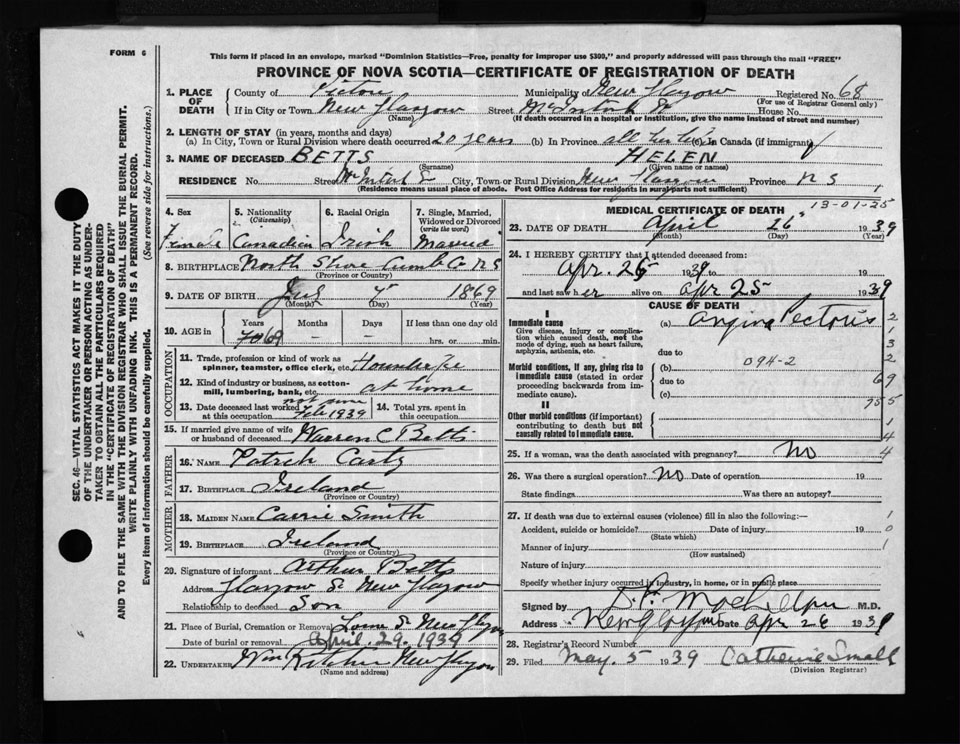 FORM 6
This form if placed in an envelope, marked "Dominion Statistics—Free, penalty for improper use $300," and properly addressed will pass through the mail "FREE"
PROVINCE OF NOVA SCOTIA—CERTIFICATE OF REGISTRATION OF DEATH
1. PLACE OF DEATH County of Pictou Municipality of New Glasgow Registered No. 68
(For use of Registrar General only)
If in City or Town New Glasgow Street McIntosh House No.
(Name) (If death occurred in a hospital or institution, give the name instead of street and number)
2. LENGTH OF STAY (in years, months and days)
(a) In City, Town or Rural Division where death occurred 20 years (b) In Province all her life (c) In Canada (if immigrant)
3. NAME OF DECEASED BETTS HELEN
(Surname) (Given name or names)
RESIDENCE No. Street McIntosh S City, Town or Rural Division New Glasgow Province N S
(Residence means usual place of abode. Post Office Address for residents in rural parts not sufficient)
SEC. 46—VITAL STATISTICS ACT MAKES IT THE DUTY
OF THE UNDERTAKER OR PERSON ACTING AS UNDER-
TAKER TO OBTAIN ALL THE PARTICULARS REQUIRED
IN THE "CERTIFICATE OF REGISTRATION OF DEATH"
AND TO FILE THE SAME WITH THE DIVISION REGISTRAR WHO SHALL ISSUE THE BURIAL PERMIT.
WRITE PLAINLY WITH UNFADING INK. THIS IS A PERMANENT RECORD.
Every item of information should be carefully supplied. (See reverse side for instructions.)
4. Sex 5. Nationality (Citizenship) 6. Racial Origin 7. Single, Married, Widowed or Divorced (write the word)
Female Canadian Irish Married
8. BIRTHPLACE North Shore Cumb Co N S
(Province or Country)
9. DATE OF BIRTH 4 1869
(Month) (Day) (Year)
10. AGE in Years Months Days If less than one day old
69 – – hrs. or min.
OCCUPATION
11. Trade, profession or kind of work as
spinner, teamster, office clerk, etc. Housewife
12. Kind of industry or business, as cotton-
mill, lumbering, bank, etc. at home
13. Date deceased last worked at this occupation not since Feb 1939 14. Total yrs. spent in this occupation
15. If married give name of wife
or husband of deceased Warren C Betts
FATHER
16. NAME Patrick Carty
17. BIRTHPLACE Ireland
(Province or Country)
MOTHER
18. MAIDEN NAME Carrie Smith
19. BIRTHPLACE Ireland
(Province or Country)
20. Signature of informant Arthur Betts
Address Glasgow St New Glasgow
Relationship to deceased Son
21. Place of Burial, Cremation or Removal Lorne St New Glasgow
Date of burial or removal April 29. 1939
22. UNDERTAKER New Glasgow
(Name and address)
MEDICAL CERTIFICATE OF DEATH 13-01-25
23. DATE OF DEATH April 26 1939
(Month) (Day) (Year)
24. I HEREBY CERTIFY that I attended deceased from:
Apr. 25 1939 to 19
and last saw her alive on Apr 25 1939
CAUSE OF DEATH
I
Immediate cause (a) Angina Pectoris
Give disease, injury or complica-
tion which caused death, not the
mode of dying, such as heart failure,
asphyxia, asthenia, etc. due to
Morbid conditions, if any, giving rise to (b) 094-2
immediate cause (stated in order due to
proceeding backwards from im-
mediate cause). (c)
II
Other morbid conditions (if important)
contributing to death but not
causally related to immediate cause.
2
1
3
2
69
955
1
4
4
25. If a woman, was the death associated with pregnancy? No
26. Was there a surgical operation? No Date of operation 19
State findings Was there an autopsy?
27. If death was due to external causes (violence) fill in also the following:— 1
Accident, suicide or homicide? Date of injury 19 0
(State which)
Manner of injury 1
(How sustained)
Nature of injury
Specify whether injury occurred in industry, in home, or in public place
Signed by M.D.
Address New Glasgow Date Apr 26 1939
28. Registrar's Record Number
29. Filed May. 5 1939 Catherine Small
(Division Registrar)